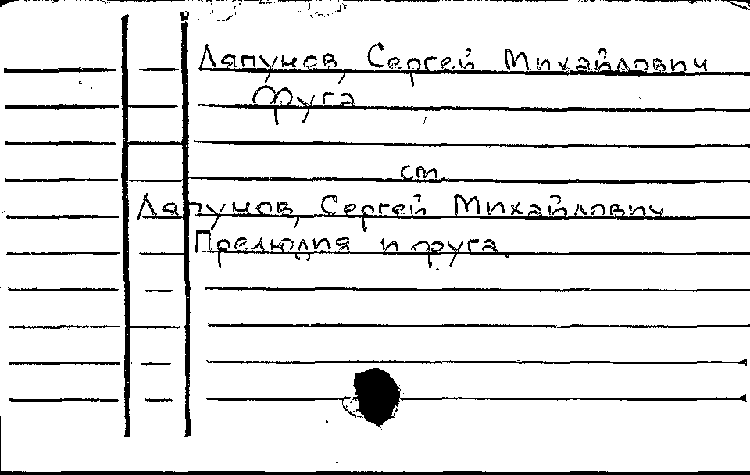 Ляпунов, Сергей Михайлович
Фуга
см.
Ляпунов, Сергей Михайлович
Прелюдия и фуга.